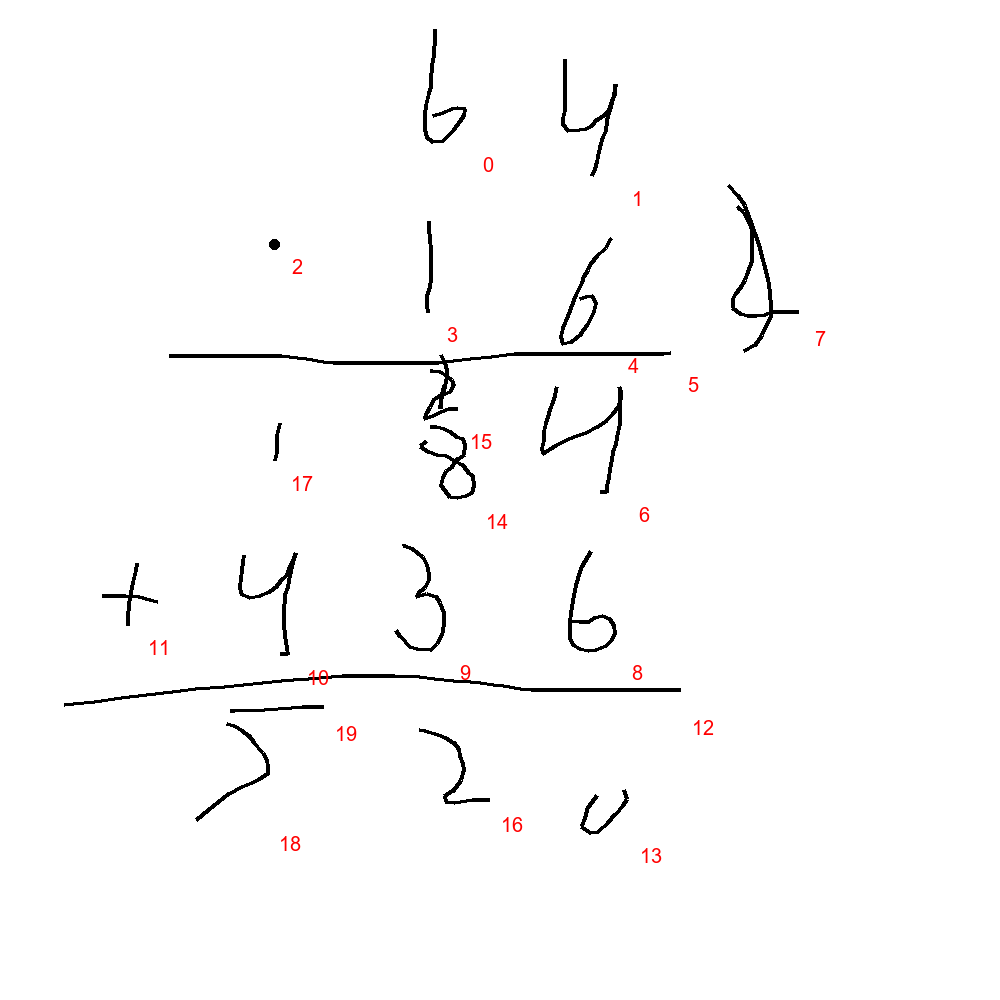 6 4
0
1
· 1 6
2
3
7
4
5
1 8 4
15
17
14
6
+ 4 3 6
11
10
9
8
12
19
5 2 0
16
18
13